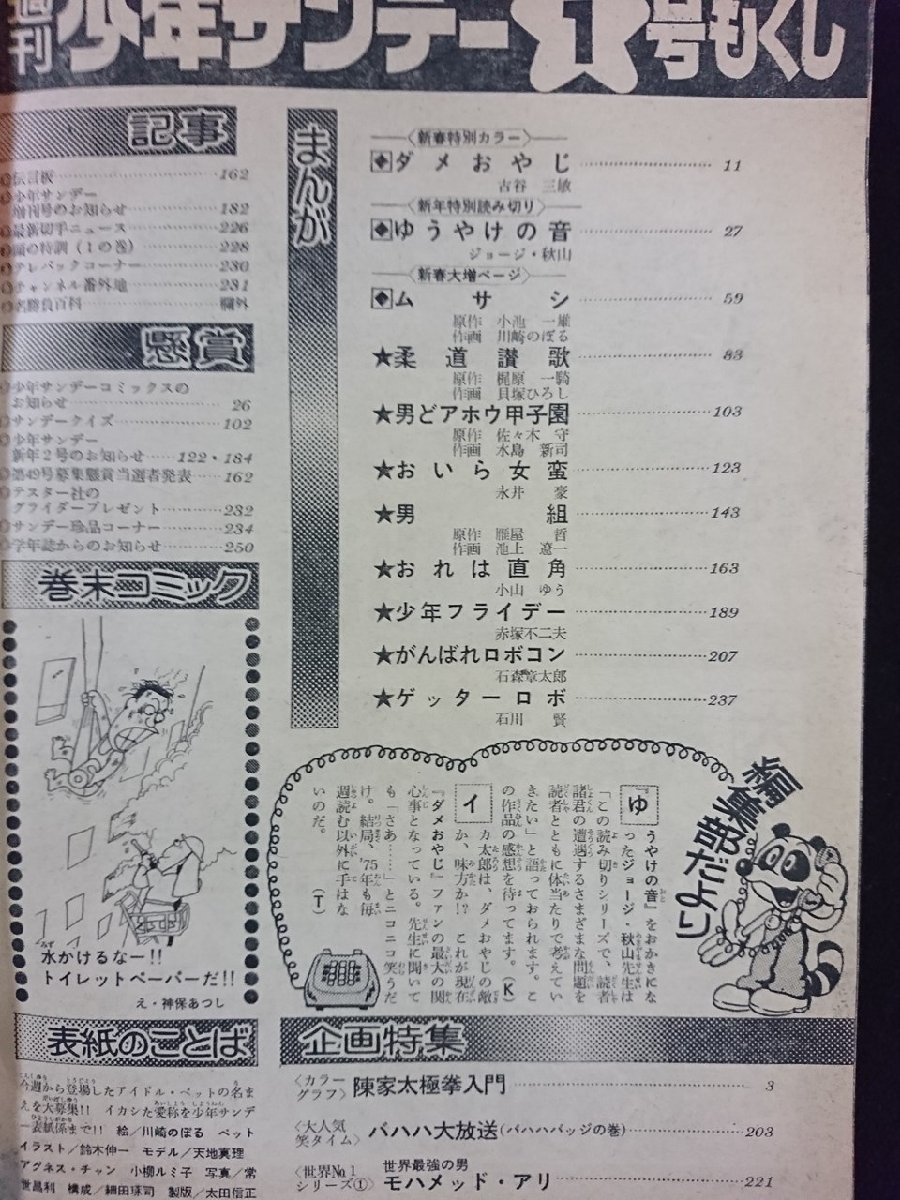 週刊少年サンデー1号もくじ
まんが
〈新春特別カラー〉
ダメおやじ 11
古谷三敏
〈新年特別読み切り〉
ゆうやけの音 27
ジョージ・秋山
〈新春大増ページ〉
ムサシ 59
原作 小池一雄
作画 川崎のぼる
★柔道讃歌 83
原作 梶原一騎
作画 貝塚ひろし
★男どアホウ甲子園 103
原作 佐々木守
作画 水島新司
★おいら女蛮 123
永井豪
★男組 143
原作 雁屋哲
作画 池上遼一
★おれは直角 163
小山ゆう
★少年フライデー 189
赤塚不二夫
★がんばれロボコン 207
石森章太郎
★ゲッターロボ 237
石川賢
記事
伝言板 162
少年サンデー
増刊号のお知らせ 182
最新切手ニュース 226
の特訓(1の巻) 228
テレパックコーナー 230
チャンネル番外地 231
名勝負百科 欄外
懸賞
少年サンデーコミックスの
お知らせ 26
サンデークイズ 102
少年サンデー
新年2号のお知らせ 122・184
第49号募集懸賞当選者発表 162
テスター社の
グライダープレゼント 232
サンデー珍品コーナー 234
学年誌からのお知らせ 250
巻末コミック
水かけるなー!!
トイレットペーパーだ!!
え・神保あつし
編集部だより
ゆうやけの音』をおかきにな
ったジョージ・秋山先生は
「この読み切りシリーズで、読者
諸君の遭遇するさまざまな問題を
読者とともに体当たりで考えてい
きたい」と語っておられます。こ
の作品の感想を待ってます。(K)
イカ太郎は、ダメおやじの敵
か、味方か!? これが現在
『ダメおやじ』ファンの最大の関
心事となっている。先生に聞いて
も「さあ……」とニコニコ笑うだ
け。結局、'75年も毎
週読む以外に手はな
いのだ。 (T)
表紙のことば
今週から登場したアイドル・ペットの名ま
えを大募集!! イカシた愛称を少年サンデ
ー表紙係まで!! 絵/川崎のぼる ペット
イラスト/鈴木伸一 モデル/天地真理
アグネス・チャン 小柳ルミ子 写真/常
世昌利 構成/細田琢司 製版/太田信正
企画特集
〈カラーグラフ〉陳家太極拳入門 3
〈大人気笑タイム〉バハハ大放送(バハハバッジの巻) 203
世界最強の男
〈世界No.1シリーズ①〉モハメッド・アリ 221